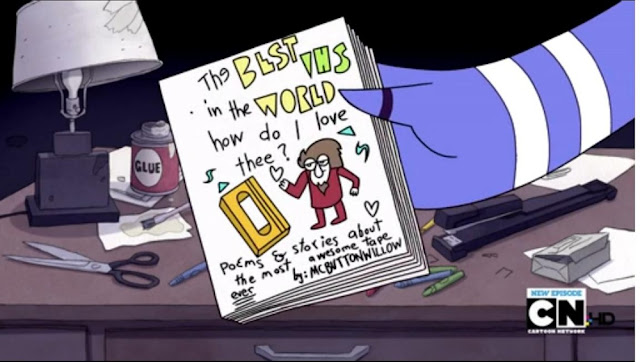 The BEST VHS
in the WORLD
how do I love
thee?
poems & stories about
the most awesome tape
ever by: MCBUTTONWILLOW
GLUE
NEW EPISODE
CN HD
CARTOON NETWORK